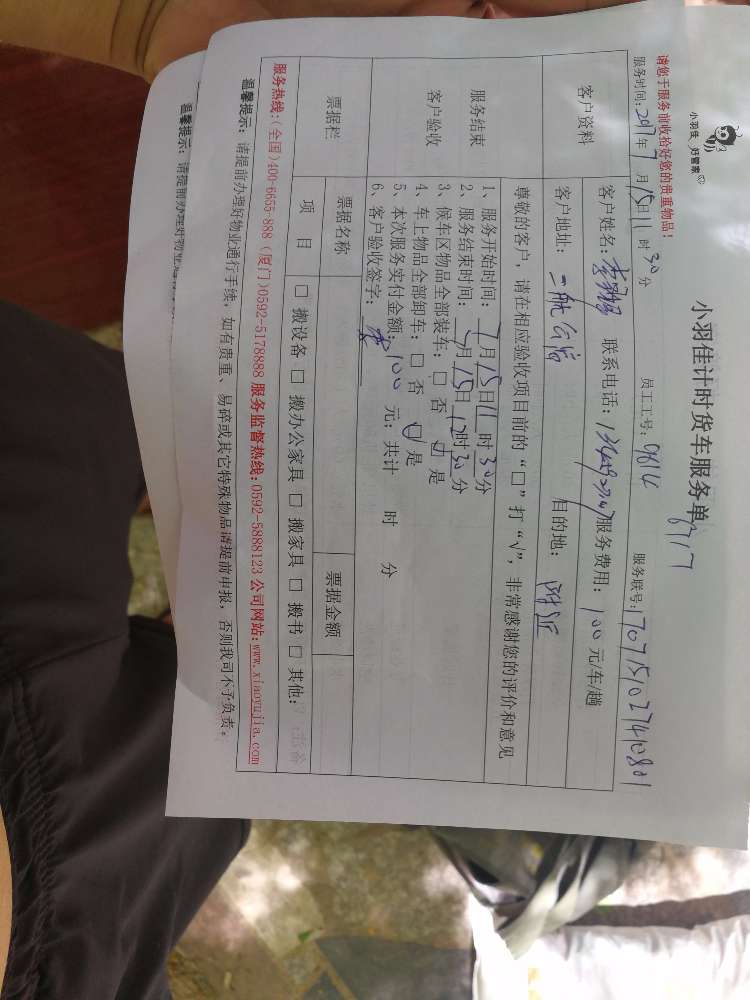 小羽佳 好管家
小羽佳计时货车服务单
6717
请您于服务前收拾好您的贵重物品！
服务时间：2017年7月15日11时30分 员工工号：9614 服务联号：
客户资料
客户姓名：李 联系电话： 服务费用：100元/车/趟
客户地址：二航公寓 目的地：附近
服务结束
客户验收
尊敬的客户，请在相应验收项目前的“□”打“√”，非常感谢您的评价和意见
1、服务开始时间：7月15日11时30分
2、服务结束时间：7月15日12时30分
3、候车区物品全部装车：□ 否 ☑ 是
4、车上物品全部卸车：□ 否 ☑ 是
5、本次服务实付金额：100元；共计 时 分
6、客户验收签字：李
票据栏
票据名称 票据金额
项 目 □ 搬设备 □ 搬办公家具 □ 搬家具 □ 搬书 □ 其他：
服务热线：(全国)400-6655-888 (厦门)0592-5178888 服务监督热线：0592-5888123 公司网站：www.xiaoyujia.com
温馨提示：请提前办理好物业通行手续，如有贵重、易碎或其它特殊物品请提前申报，否则我司不予负责。
温馨提示：请提前办理好物业通